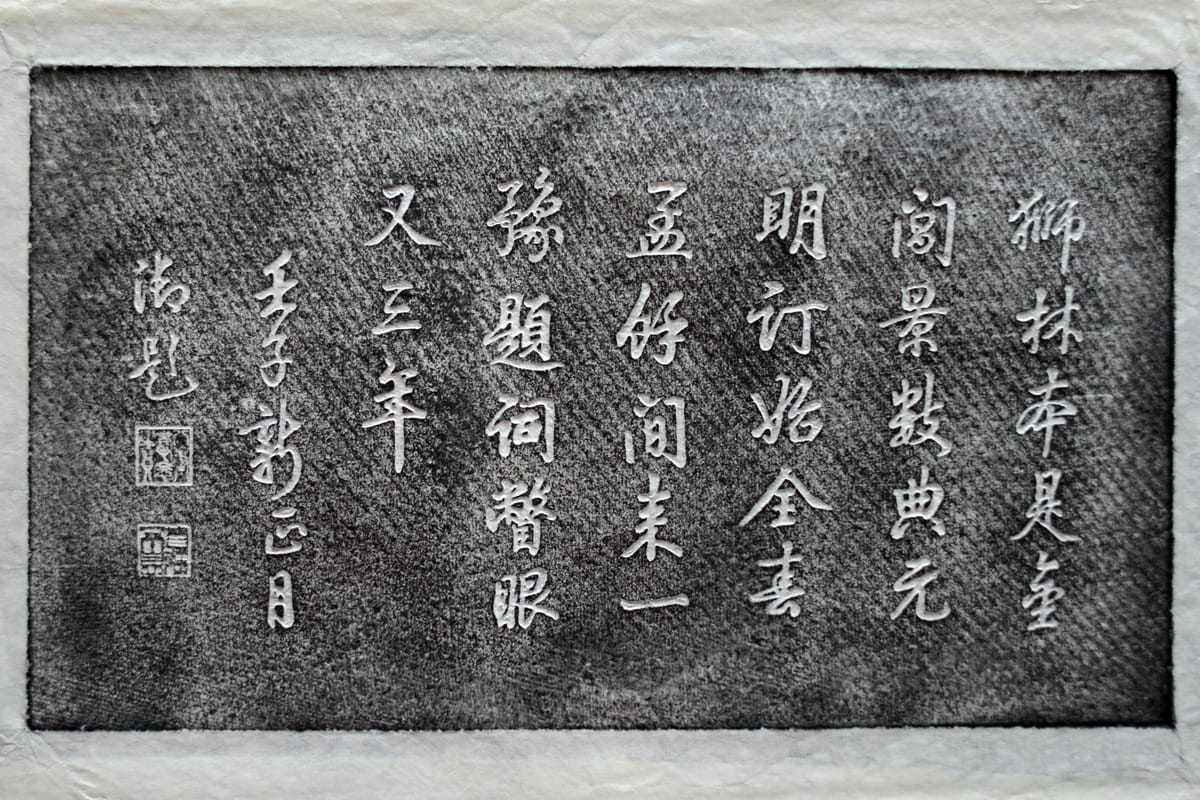 獅林本是金
閶景數典元
明訂始全春
孟餘間來一
豫題詞瞥眼
又三年
壬子新正月
御題